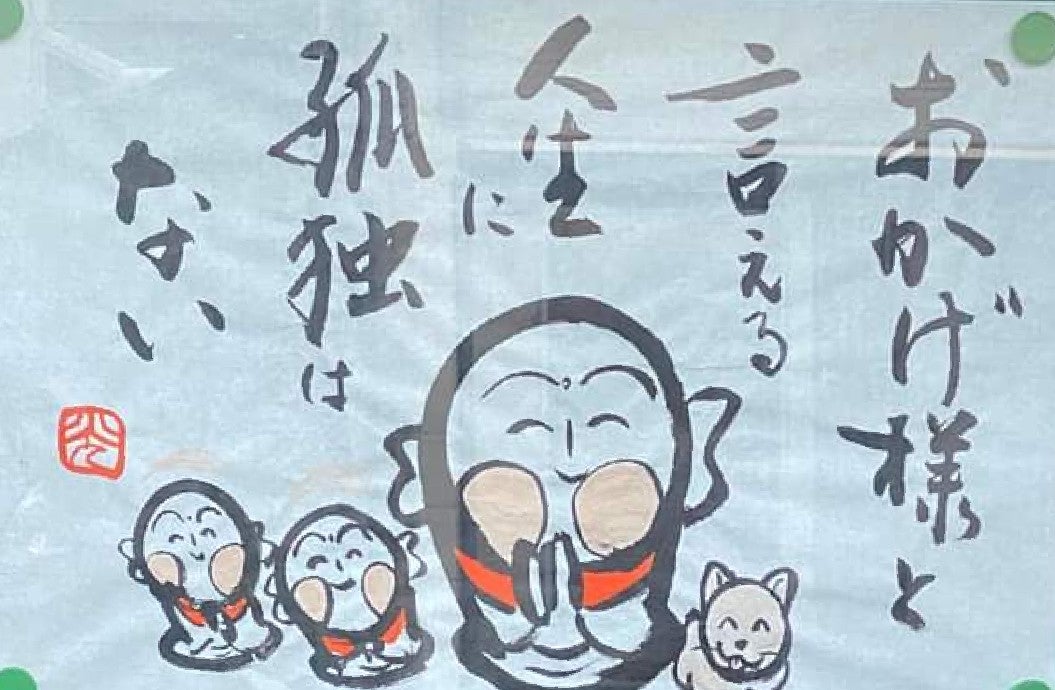 おかげ様と
言える
人生に
孤独は
ない